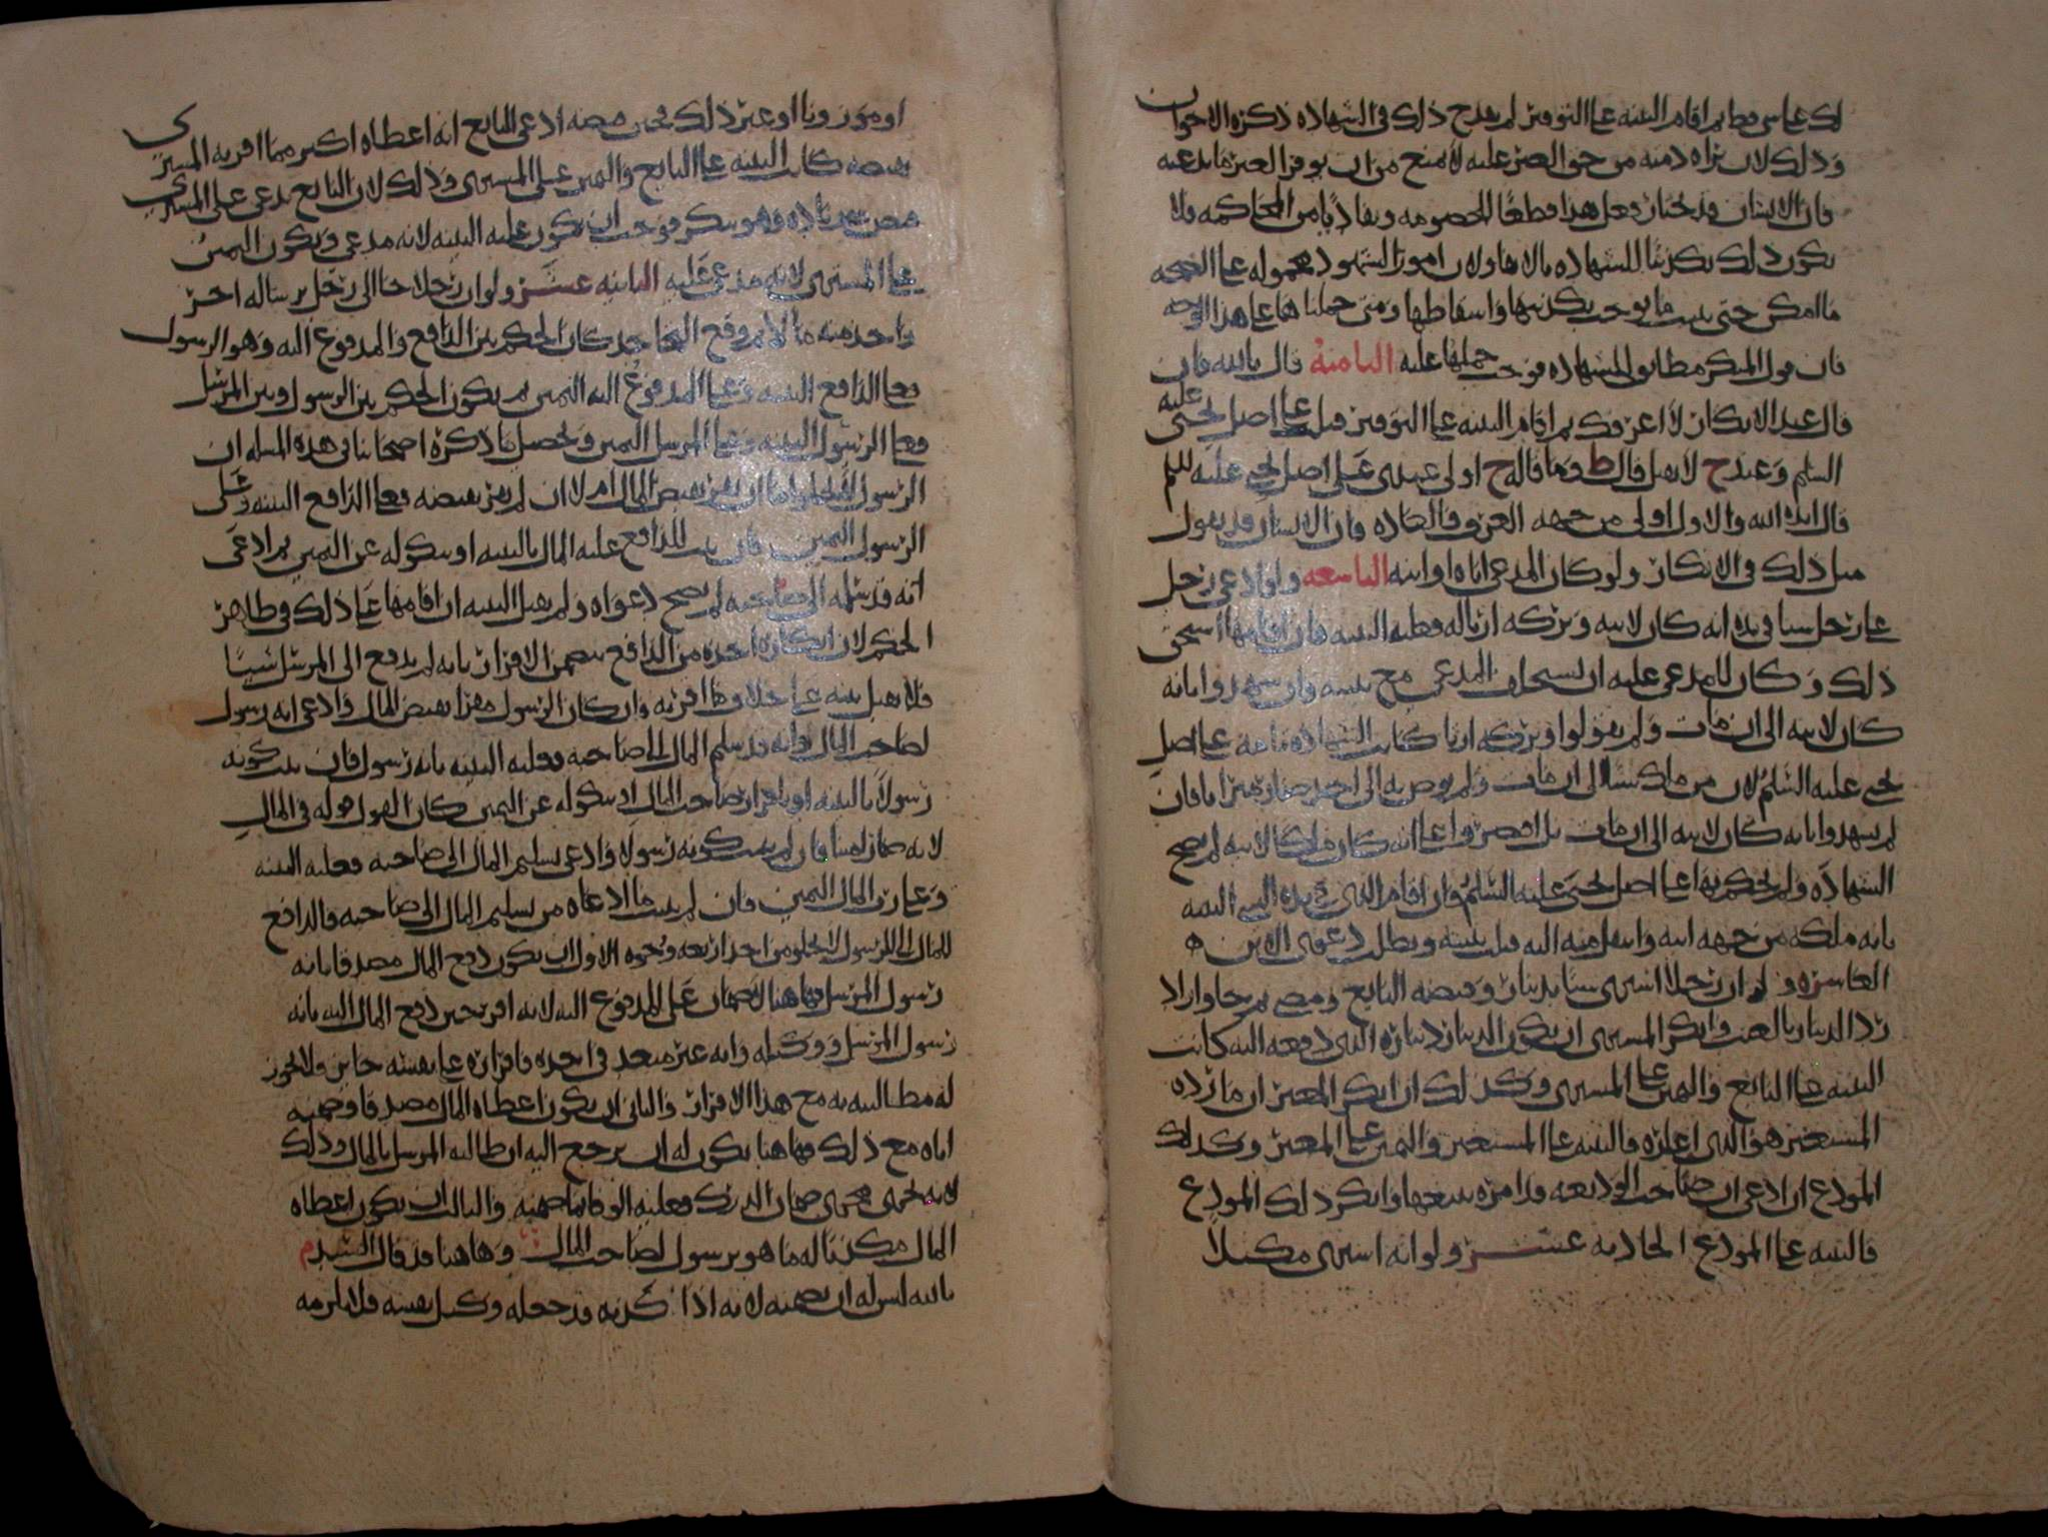 لك علي شي قط ثم اقام البينه علي التوفير لم يقدح ذلك في الشهاده ذكره الاخوان
وذلك لان براه ذمته من حق الغير عليه لا يمنع من ان يوفر الغير ما يدعيه
فان الانسان قد يختار فعل هذا قطعا للخصومه وتفاديا من المحاكمه فلا
يكون ذلك تكذيبا للشهاده بالابفا ولان امور الشهود محموله علي الصحه
ما امكن حتي يثبت ما يوجب تكذيبها واسقاطها ومتي حملناها علي هذا الوجه
كان قول المنكر مطابق للشهاده فوجب حملها عليه الثامنه قال بالله فان
قال عند الانكار لا اعرفك ثم اقام البينه علي التوفير قبل علي اصل يحيي عليه
السلم وعند ح لا يقبل قال ط وما قاله ح اولي عندي علي اصل يحيي عليه السلم
قال ايده الله والاول اولي من جهه العرف والعاده فان الانسان قد يقول
مثل ذلك في الانكار ولو كان المدعي اباه او ابنه التاسعه ولو ادعي رجل
علي رجل شيا في يده انه كان لابيه وتركه ارثا له فعليه البينه فان اقامها استحق
ذلك وكان للمدعي عليه ان يستحلف المدعي مع بينته وان شهدوا بانه
كان لابيه الي ان مات ولم يقولوا وتركه ارثا كانت الشهاده تامه علي اصل
يحيي عليه السلم لان من ملك شيا الي ان مات ولم يوص به الي احد صار ميراثا فان
لم يشهدوا بانه كان لابيه الي ان مات بل اقتصروا علي انه كان ملكا لابيه لم تصح
الشهاده ولم يحكم بها علي اصل يحيي عليه السلم وان اقام الذي في يده الشي البينه
بانه ملكه من جهه ابيه وانتقل منه اليه قبلت بينته وبطل دعوي الابن ه
العاشره ولو ان رجلا اشتري شيا بدينار وقبضه البايع ومضي ثم جا واراد
رد الدينار بالعيب وانكر المشتري ان يكون الدينار ديناره الذي دفعه اليه كانت
البينه علي البايع واليمين علي المشتري وكذلك ان انكر المعير ان ما رده
المستعير هو الذي اعاره فالبينه علي المستعير واليمين علي المعير وكذلك
المودع ان ادعي ان صاحب الوديعه قد امره ببيعها وانكر ذلك المودع
فالبينه علي المودع الحاديه عشر ولو انه اشتري مكيلا
او موزونا او غير ذلك فحين قبضه ادعي البايع انه اعطاه اكثر مما اقر به المشتري
بقبضه كانت البينه علي البايع واليمين علي المشتري وذلك لان البايع يدعي علي المشتري
قبض زياده وهو ينكر فوجب ان يكون عليه البينه لانه مدعي ويكون اليمين
علي المشتري لانه مدعي عليه الثانيه عشر ولو ان رجلا جا الي رجل برساله اخر
واخذ منه مالا ثم وقع التجاحد كان الحكم بين الدافع والمدفوع اليه وهو الرسول
فعلي الدافع البينه وعلي المدفوع اليه اليمين ثم يكون الحكم بين الرسول وبين المرسل
فعلي الرسول البينه وعلي المرسل اليمين وتحصيل ما ذكره اصحابنا في هذه المسله ان
الرسول لا يخلو اما ان يقر بقبض المال ام لا ان لم يقر بقبضه فعلي الدافع البينه وعلي
الرسول اليمين فان ثبت للدافع عليه المال بالبينه او نكوله عن اليمين ثم ادعي
انه قد سلمه الي صاحبه لم تصح دعواه ولم يقبل البينه ان اقامها علي ذلك في ظاهر
الحكم لان انكاره اخذه من الدافع يتضمن الاقرار بانه لم يدفع الي المرسل شيئا
فلا يقبل بينه علي خلاف ما اقر به وان كان الرسول مقرا بقبض المال وادعي انه رسول
لصاحب المال وانه قد سلم المال الي صاحبه فعليه البينه بانه رسول فان ثبت كونه
رسولا بالبينه او باقرار صاحب المال او نكوله عن اليمين كان القول قوله في المال
لانه صار امينا وان لم يثبت كونه رسولا وادعي تسليم المال الي صاحبه فعليه البينه
وعلي رب المال اليمين فان لم يثبت ما ادعاه من تسليم المال الي صاحبه فالدافع
للمال الي الرسول لا يخلو من احد اربعه وجوه الاول ان يكون دفع المال مصدقا بانه
رسول المرسل فهاهنا لا ضمان علي المدفوع اليه لانه اقر حين دفع المال اليه بانه
رسول المرسل ووكيله وانه غير متعد في اخذه فاقراره علي نفسه جايز ولا يجوز
له مطالبته به مع هذا الاقرار والثاني ان يكون اعطاه المال مصدقا وضمنه
اياه مع ذلك فهاهنا يكون له ان يرجع اليه ان طالبه المرسل بالمال وذلك
لانه يجري مجري ضمان الدرك فعليه الوفا بما ضمنه والثالث ان يكون اعطاه
المال مكذبا له ما هو برسول لصاحب المال وهاهنا قد قال السيد م
بالله ليس له ان يضمنه لانه اذا كذبه قد جعله وكيل نفسه فلا يلزمه